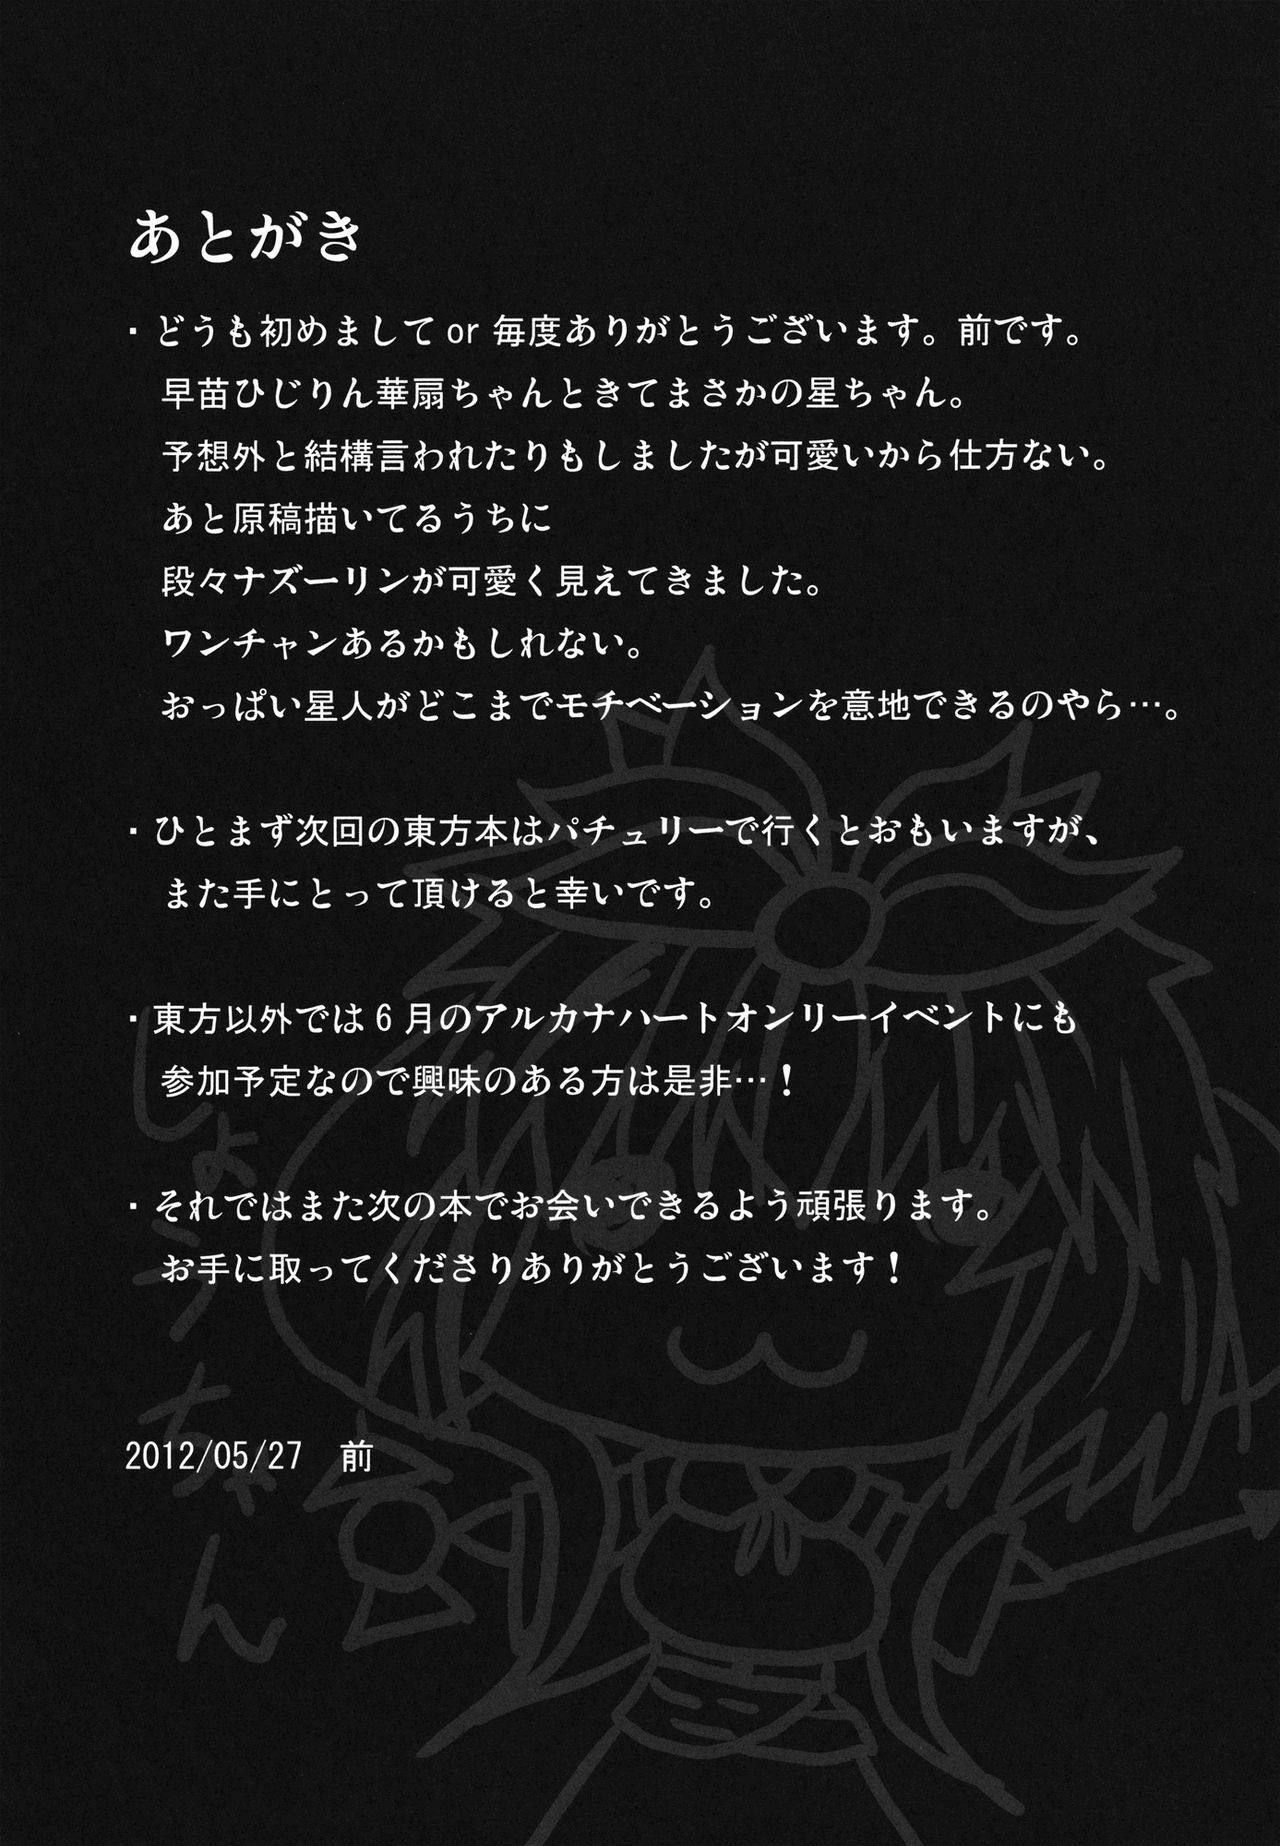 あとがき
・どうも初めまして or 毎度ありがとうございます。前です。
早苗ひじりん華扇ちゃんときてまさかの星ちゃん。
予想外と結構言われたりもしましたが可愛いから仕方ない。
あと原稿描いてるうちに
段々ナズーリンが可愛く見えてきました。
ワンチャンあるかもしれない。
おっぱい星人がどこまでモチベーションを意地できるのやら…。
・ひとまず次回の東方本はパチュリーで行くとおもいますが、
また手にとって頂けると幸いです。
・東方以外では 6 月のアルカナハートオンリーイベントにも
参加予定なので興味のある方は是非…！
・それではまた次の本でお会いできるよう頑張ります。
お手に取ってくださりありがとうございます！
2012/05/27　前
しょうちゃん